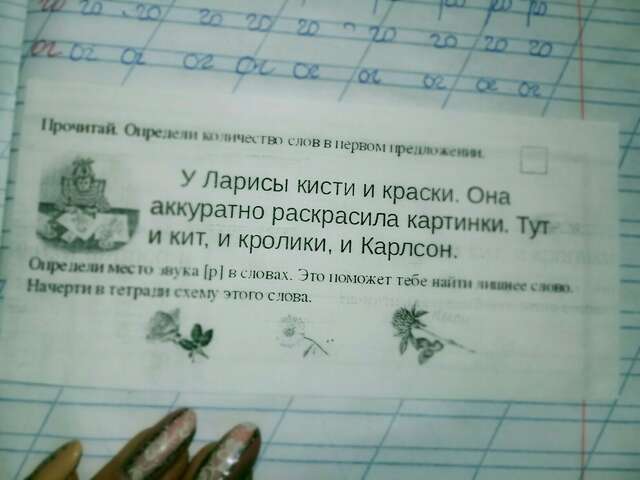 го го го го го го го го
ог ог ог ог ог ог ог ог ог
Прочитай. Определи количество слов в первом предложении.
У Ларисы кисти и краски. Она
аккуратно раскрасила картинки. Тут
и кит, и кролики, и Карлсон.
Определи место звука [р] в словах. Это поможет тебе найти лишнее слово.
Начерти в тетради схему этого слова.